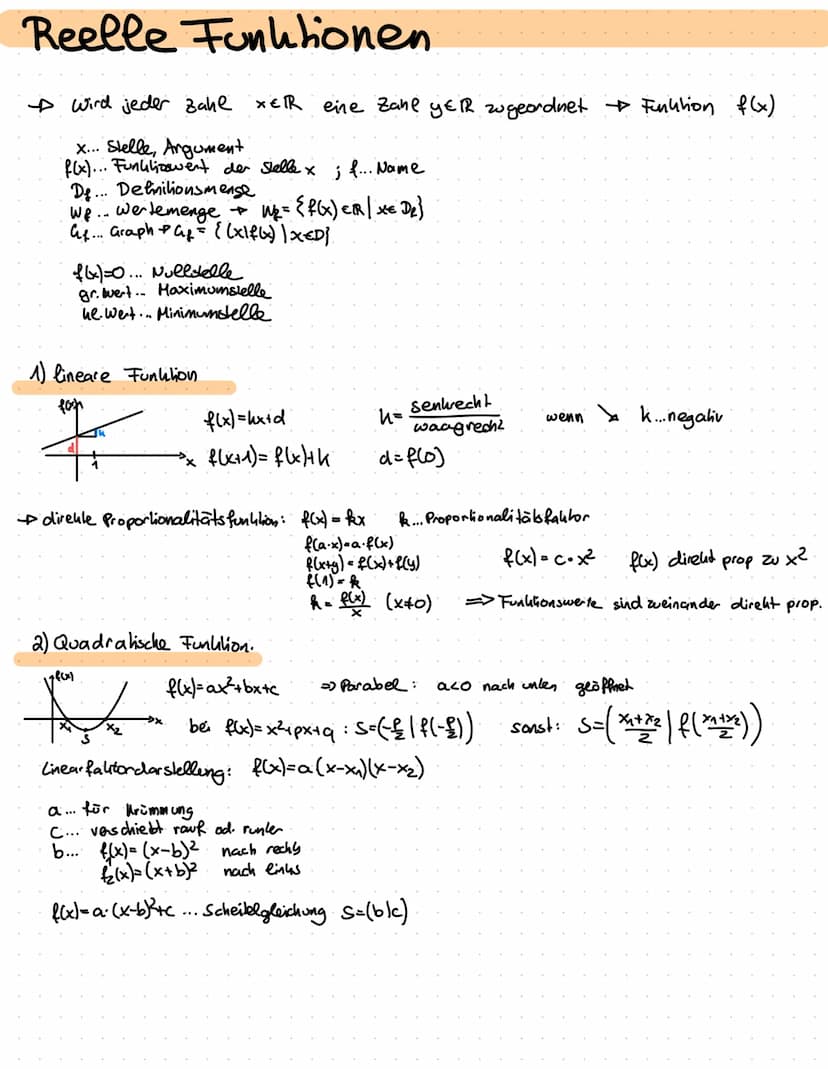 Reelle Funktionen
→ wird jeder Zahl x∈ℝ eine Zahl y∈ℝ zugeordnet → Funktion f(x)
x... Stelle, Argument
f(x)... Funktionswert der Stelle x ; f... Name
Df... Definitionsmenge
Wf... Wertemenge → Wf = {f(x)∈ℝ | x∈Df}
Gf... Graph → Gf = {(x|f(x) | x∈D}
f(x)=0... Nullstelle
gr. Wert... Maximumstelle
kl. Wert... Minimumstelle
1) lineare Funktion
f(x)
k
d
1
x
f(x)=kx+d
k= senkrecht / waagrecht
wenn ↘ k...negativ
f(x+1)=f(x)+k
d=f(0)
→ direkte Proportionalitätsfunktion: f(x)=kx k... Proportionalitätsfaktor
f(a·x)=a·f(x)
f(x+y)=f(x)+f(y)
f(x)=c·x² f(x) direkt prop zu x²
f(1)=k
k= f(x)/x (x≠0) ⇒ Funktionswerte sind zueinander direkt prop.
2) Quadratische Funktion.
f(x)
x₁ x₂ x
S
f(x)=ax²+bx+c ⇒ Parabel: a<0 nach unten geöffnet
bei f(x)=x²+px+q : S=(-p/2 | f(-p/2)) sonst: S=((x₁+x₂)/2 | f((x₁+x₂)/2))
Linearfaktordarstellung: f(x)=a(x-x₁)(x-x₂)
a... für Krümmung
c... verschiebt rauf od. runter
b... f₁(x)=(x-b)² nach rechts
f₂(x)=(x+b)² nach links
f(x)=a·(x-b)²+c ... Scheitelgleichung S=(b|c)